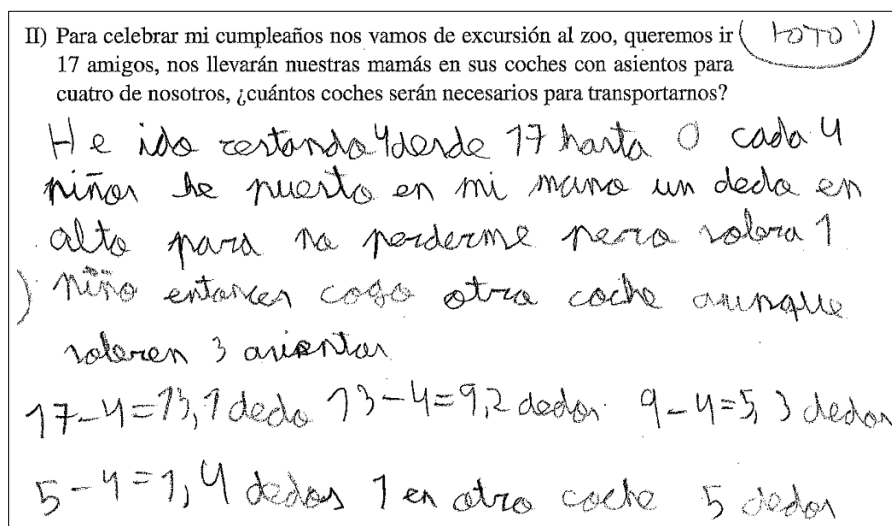 II) Para celebrar mi cumpleaños nos vamos de excursión al zoo, queremos ir
17 amigos, nos llevarán nuestras mamás en sus coches con asientos para
cuatro de nosotros, ¿cuántos coches serán necesarios para transportarnos?
He ido restando 4 desde 17 hasta 0 cada 4
niños he puesto en mi mano un dedo en
alto para no perderme pero sobra 1
niño entonces cogo otro coche aunque
sobren 3 asientos
17-4=13, 1 dedo 13-4=9, 2 dedos 9-4=5, 3 dedos
5-4=1, 4 dedos 1 en otro coche 5 dedos